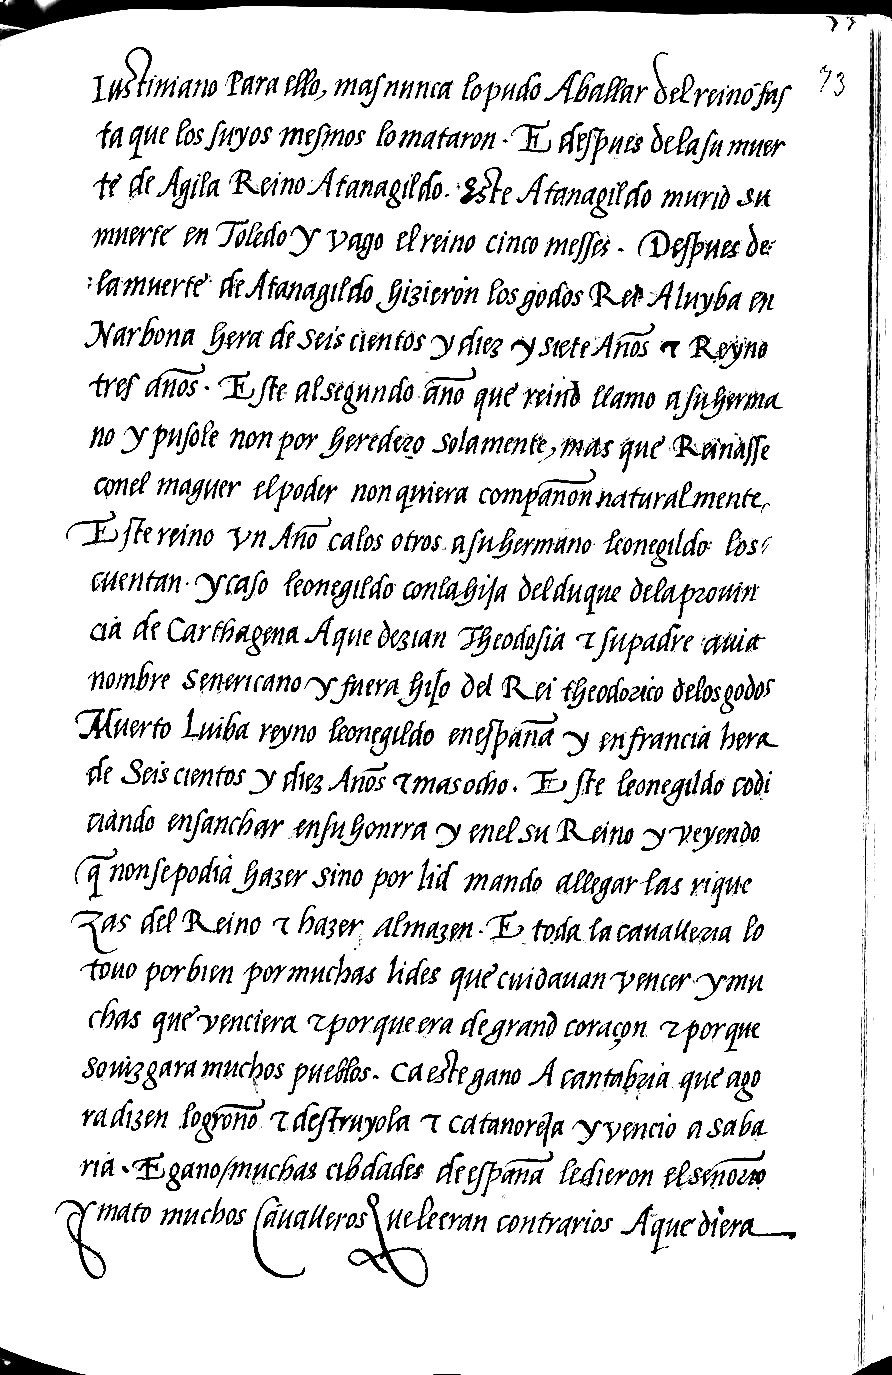 73
Iustiniano Para ello, mas nunca lo pudo Aballar del reino fas
ta que los suyos mesmos lo mataron. E despues de la su muer
te de Agila Reino Atanagildo. Este Atanagildo murio su
muerte en Toledo y vago el reino cinco messes. Despues de
la muerte de Atanagildo hizieron los godos Rei Aluyba en
Narbona hera de seis cientos y diez y siete Años ⁊ Reyno
tres años. Este al segundo año que reino llamo a su herma
no y pusole non por heredero solamente, mas que Reinasse
con el maguer el poder non quiera compañon naturalmente,
Este reino vn Año ca los otros a su hermano leonegildo los
cuentan. y caso leonegildo con la hija del duque de la prouin
cia de Carthagena A que dezian Theodosia ⁊ su padre auia
nombre Senericano y fuera hijo del Rei theodorico de los godos
Muerto Luiba reyno leonegildo en españa y en francia hera
de Seis cientos y diez Años ⁊ mas ocho. Este leonegildo codi
ciando ensanchar en su honrra y en el su Reino y veyendo
q̃ non se podia hazer sino por lid mando allegar las rique
zas del Reino ⁊ hazer almazen. E toda la caualleria lo
touo por bien por muchas lides que cuidauan vencer y mu
chas que venciera ⁊ porque era de grand coraçon ⁊ porque
soiuzgara muchos pueblos. Ca este gano A cantabria que ago
ra dizen logroño ⁊ destruyola ⁊ Catanoreja y vencio a saba
ria. E gano muchas cibdades de españa le dieron el señorio
y mato muchos Caualleros Que le eran contrarios A que diera